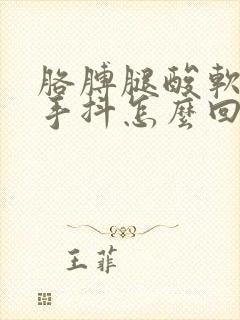 胳膊腿酸軟
手抖怎麼回
王菲